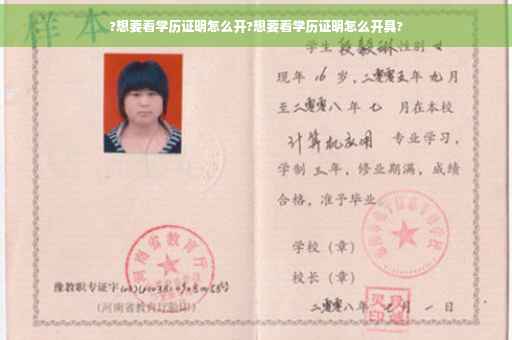 ?想要看学历证明怎么开?想要看学历证明怎么开具?
样本
学生段毅琳性别女
现年16岁，二零零五年九月
至二零零八年七月在本校
计算机应用专业学习，
学制三年，修业期满，成绩
合格，准予毕业
学校（章）
校长（章）
二零零八年七月一日
河南省教育厅
豫教职专证字
（河南省教育厅验印）